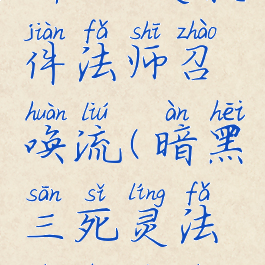 jiàn fǎ shī zhào
件法师召
huàn liú àn hēi
唤流(暗黑
sān sǐ líng fǎ
三死灵法